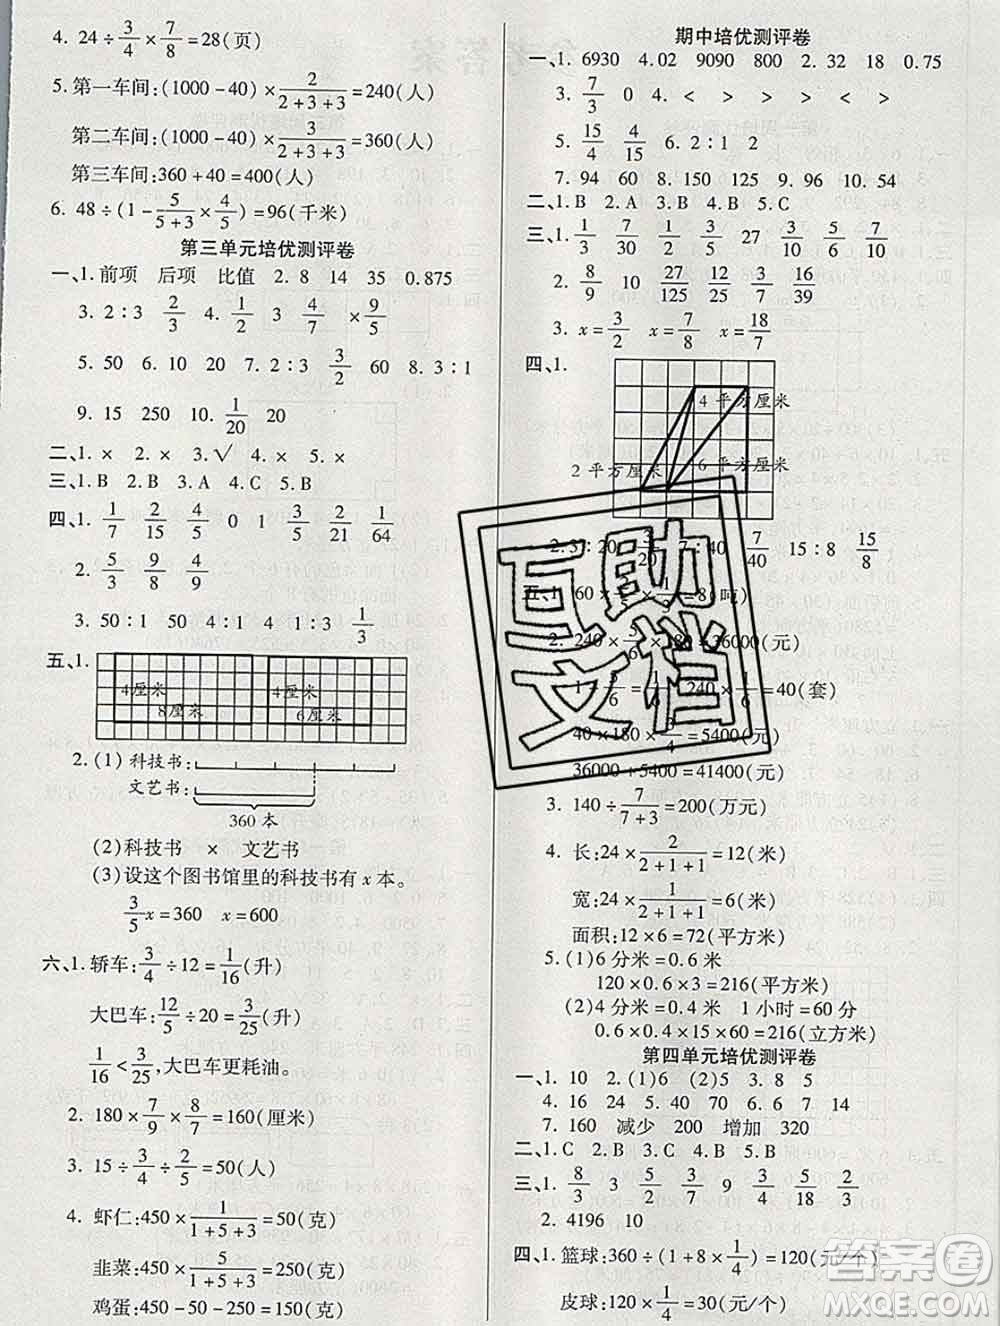 4. 24÷3/4×7/8=28(页)
5. 第一车间:(1000-40)×2/(2+3+3)=240(人)
第二车间:(1000-40)×3/(2+3+3)=360(人)
第三车间:360+40=400(人)
6. 48÷(1-5/(5+3)×4/5)=96(千米)
第三单元培优测评卷
一、1. 前项 后项 比值 2. 8 14 35 0.875
3. 2∶3 2/3 4. 1/2 3 4/7 ×9/5
5. 50 6. 10 20 7. 2∶3 3/2 60 8. 3∶1
9. 15 250 10. 1/20 20
二、1. × 2. × 3. √ 4. × 5. ×
三、1. B 2. B 3. A 4. C 5. B
四、1. 1/7 2/15 4/5 0 1 3/5 2/21 1/64
2. 3/5 8/9 4/9
3. 50∶1 50 4∶1 4 1∶3 1/3
五、1.
4厘米 4厘米
8厘米 6厘米
2. (1)科技书:
文艺书:
360本
(2)科技书 × 文艺书
(3)设这个图书馆里的科技书有x本。
3/5x=360 x=600
六、1. 轿车:3/4÷12=1/16(升)
大巴车:12/5÷20=3/25(升)
1/16<3/25,大巴车更耗油。
2. 180×7/9×8/7=160(厘米)
3. 15÷3/4÷2/5=50(人)
4. 虾仁:450×1/(1+5+3)=50(克)
韭菜:450×5/(1+5+3)=250(克)
鸡蛋:450-50-250=150(克)
期中培优测评卷
一、1. 6930 4.02 9090 800 2. 32 18 0.75
3. 7/3 0 4. < > > > <
5. 15/4 4/15 6. 2∶1 2
7. 94 60 8. 150 125 9. 96 10. 54
二、1. B 2. A 3. B 4. B 5. C
三、1. 1/3 7/30 27 5/3 3/10 4/5
2. 8/9 9/10 27/125 12/25 4/15 16/9
3. x=3/2 x=7/8 x=18/7
四、1.
4 平方厘米
2 平方厘米 6 平方厘米
2. 3∶20 3/20 7∶40 7/40 15∶8 15/8
五、1. 60× =8(吨)
2. 240×5/6×180=36000(元)
240× =40(套)
40×180×3/4=5400(元)
36000+5400=41400(元)
3. 140÷7/(7+3)=200(万元)
4. 长:24×2/(2+1+1)=12(米)
宽:24×1/(2+1+1)=6(米)
面积:12×6=72(平方米)
5. (1)6分米=0.6米
120×0.6×3=216(平方米)
(2)4分米=0.4米 1小时=60分
0.6×0.4×15×60=216(立方米)
第四单元培优测评卷
一、1. 10 2. (1)6 (2)5 3. 8 5
4. 16 24 5. 40 70 6. 7 14
7. 160 减少 200 增加 320
二、1. C 2. B 3. C 4. B 5. B
三、1. 8/9 3 5/2 9 3/20 2/15 2/3
2. 4196 10
四、1. 篮球:360÷(1+8×1/4)=120(元/个)
皮球:120×1/4=30(元/个)
互助文档
答案圈
MXQE.COM